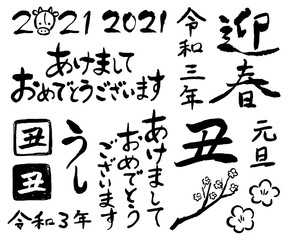 2021 2021
あけまして
おめでとうございます
令和三年
迎春
丑
丑
うし
あけまして
おめでとう
ございます
丑
元旦
令和3年